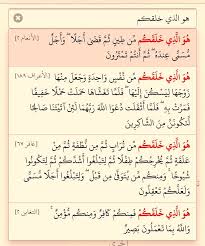 هو الذي خلقكم
هُوَ الَّذِي خَلَقَكُم مِّن طِينٍ ثُمَّ قَضَىٰ أَجَلًا ۖ وَأَجَلٌ [الأنعام ٢]
مُّسَمًّى عِندَهُ ۖ ثُمَّ أَنتُمْ تَمْتَرُونَ
هُوَ الَّذِي خَلَقَكُم مِّن نَّفْسٍ وَاحِدَةٍ وَجَعَلَ مِنْهَا [الأعراف ١٨٩]
زَوْجَهَا لِيَسْكُنَ إِلَيْهَا ۖ فَلَمَّا تَغَشَّاهَا حَمَلَتْ حَمْلًا خَفِيفًا
فَمَرَّتْ بِهِ ۖ فَلَمَّا أَثْقَلَت دَّعَوَا اللَّهَ رَبَّهُمَا لَئِنْ آتَيْتَنَا صَالِحًا
لَّنَكُونَنَّ مِنَ الشَّاكِرِينَ
هُوَ الَّذِي خَلَقَكُم مِّن تُرَابٍ ثُمَّ مِن نُّطْفَةٍ ثُمَّ مِنْ [غافر ٦٧]
عَلَقَةٍ ثُمَّ يُخْرِجُكُمْ طِفْلًا ثُمَّ لِتَبْلُغُوا أَشُدَّكُمْ ثُمَّ لِتَكُونُوا
شُيُوخًا ۚ وَمِنكُم مَّن يُتَوَفَّىٰ مِن قَبْلُ ۖ وَلِتَبْلُغُوا أَجَلًا مُّسَمًّى
وَلَعَلَّكُمْ تَعْقِلُونَ
هُوَ الَّذِي خَلَقَكُمْ فَمِنكُمْ كَافِرٌ وَمِنكُم مُّؤْمِنٌ ۚ [التغابن ٢]
وَاللَّهُ بِمَا تَعْمَلُونَ بَصِيرٌ